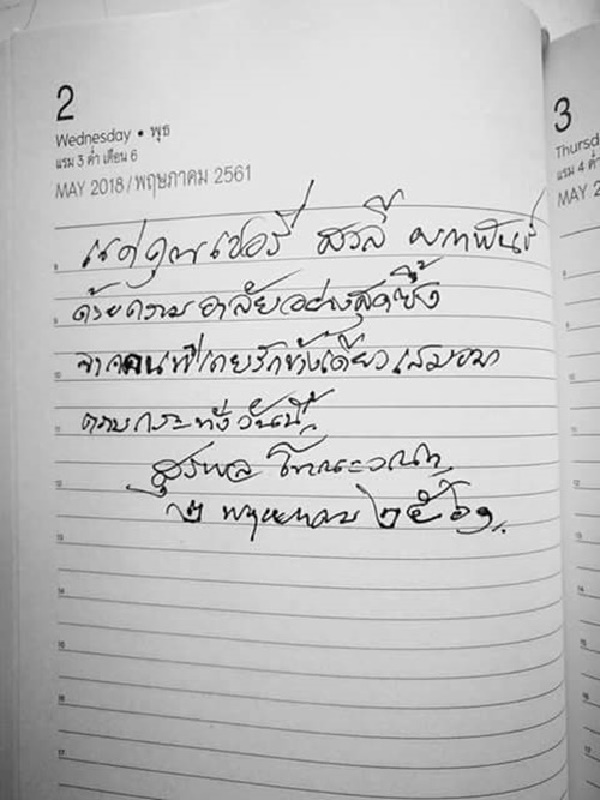 2
Wednesday • พุธ
แรม 3 ค่ำ เดือน 6
MAY 2018/พฤษภาคม 2561
แด่คุณเชอรี่ สวลี ผกาพันธุ์
ด้วยความอาลัยอย่างสุดซึ้ง
จากคนที่เคยรักข้างเดียวเสมอมา
ตราบกระทั่งวันนี้
สุรพล โทณะวณิก
๒ พฤษภาคม ๒๕๖๑
3
Thursd
แรม 4 ค่ำ
MAY 2